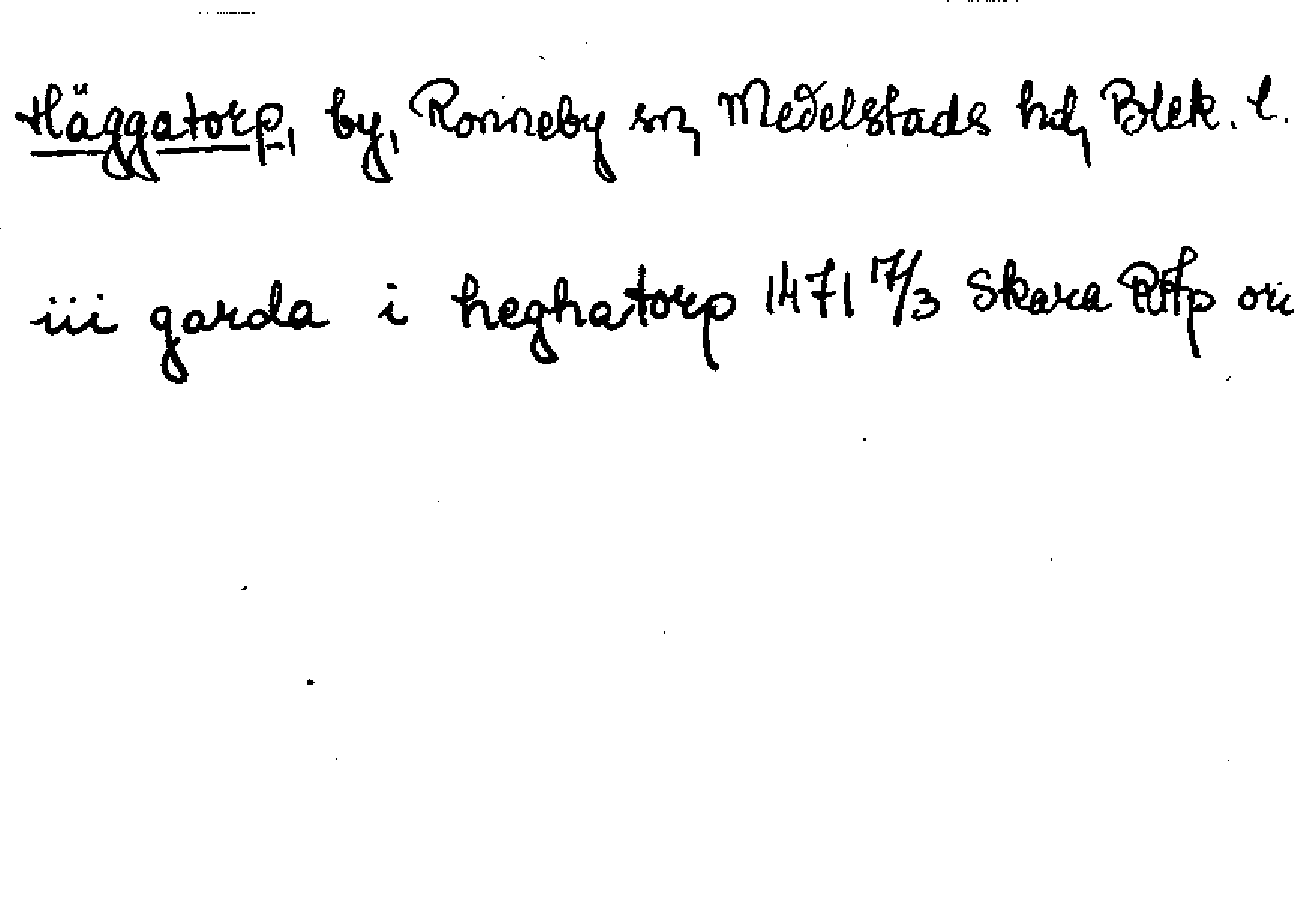 Häggatorp, by, Ronneby sn, Medelstads hd, Blek. l.
iii garda i heghatorp 1471 17/3 Skara RAp ori